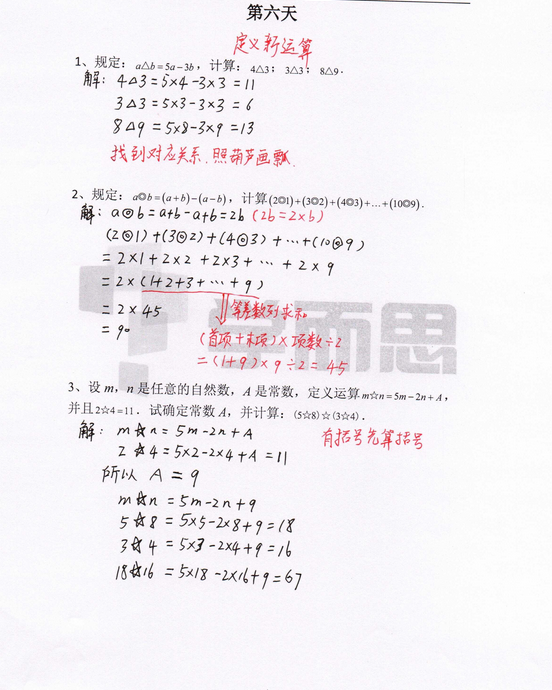 第六天
定义新运算
1、规定：a△b=5a-3b，计算：4△3；3△3；8△9.
解：4△3=5×4-3×3=11
3△3=5×3-3×3=6
8△9=5×8-3×9=13
找到对应关系、照葫芦画瓢.
2、规定：a◎b=(a+b)-(a-b)，计算(2◎1)+(3◎2)+(4◎3)+…+(10◎9).
解：a◎b=a+b-a+b=2b (2b=2×b)
(2◎1)+(3◎2)+(4◎3)+…+(10◎9)
=2×1+2×2+2×3+…+2×9
=2×(1+2+3+…+9)
=2×45 等差数列求和
=90
(首项+末项)×项数÷2
=(1+9)×9÷2=45
学而思
3、设m，n是任意的自然数，A是常数，定义运算m☆n=5m-2n+A，
并且2☆4=11．试确定常数A，并计算：(5☆8)☆(3☆4)．
解：m☆n=5m-2n+A 有括号先算括号
2☆4=5×2-2×4+A=11
所以 A=9
m☆n=5m-2n+9
5☆8=5×5-2×8+9=18
3☆4=5×3-2×4+9=16
18☆16=5×18-2×16+9=67